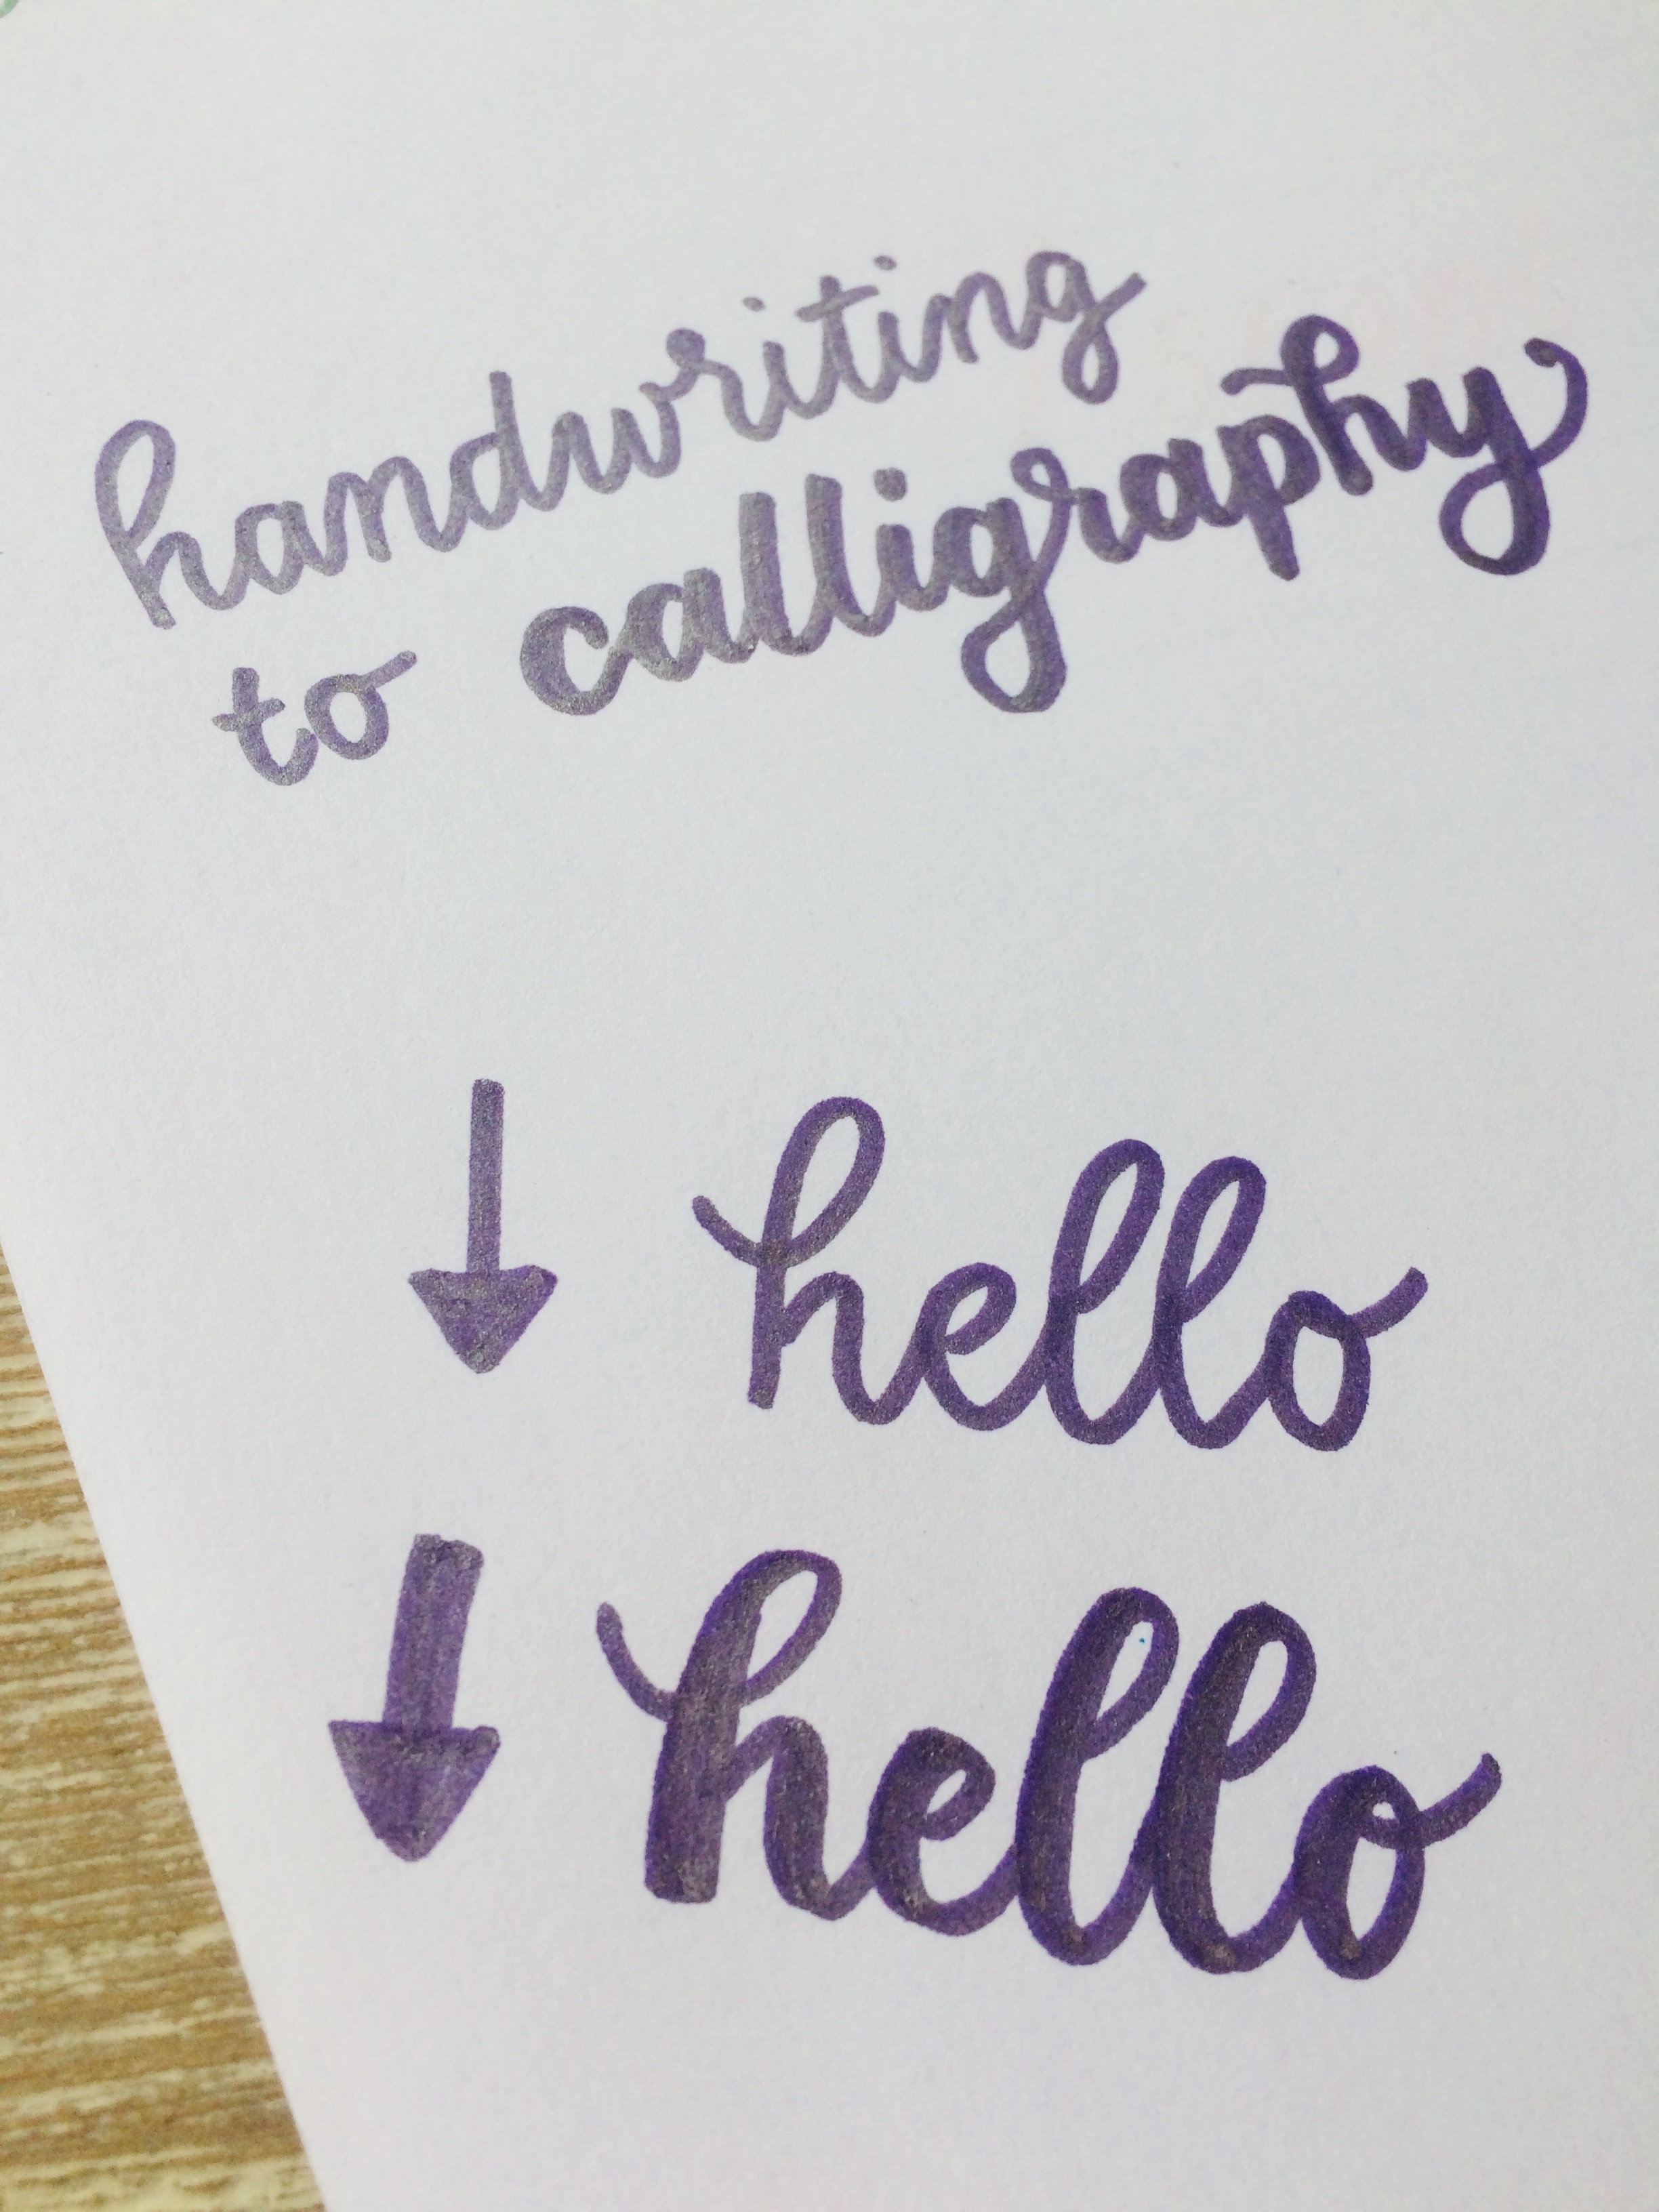 handwriting
to calligraphy
hello
hello